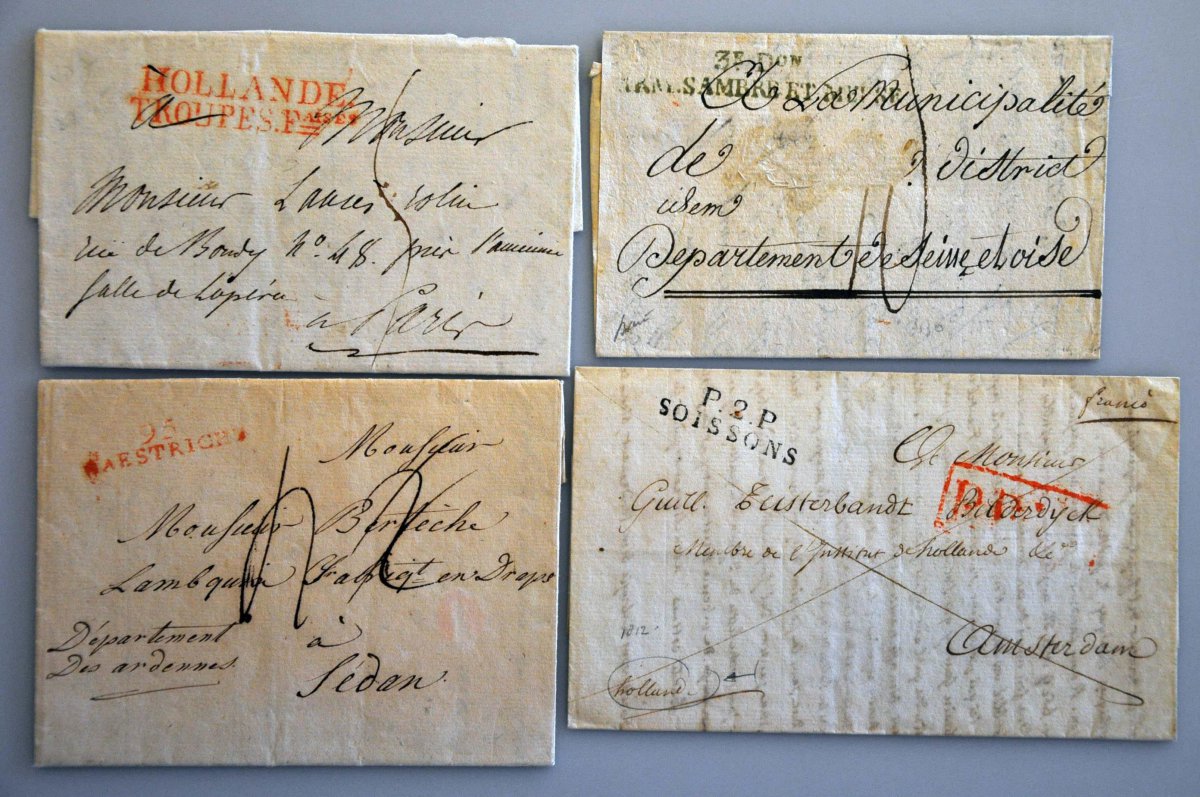 HOLLANDE
TROUPES.FAISES
à Monsieur
Monsieur
rue de Bondy No. 48. près l'ancienne
Salle de Lopéra
à Paris
3E. DON
ARM.SAMBRE ET MEUSE
A La Municipalité
de district
idem
Departement de Seine et Oise
94
MAESTRICHT
Monsieur
Monsieur Bertèche
Lambquin Fabriqt en Draps
à
Sédan
Département
Des ardennes
P.2.P
SOISSONS
franco
A Monsieur
Guill. Teisterbandt Bilderdijck
P.P.
Membre de l'Institut de hollande &c
1812
Amsterdam
holland